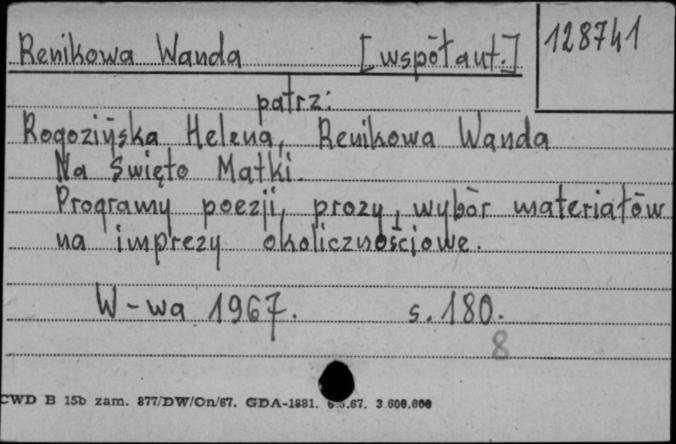 Renikowa Wanda [współaut.] 128741
patrz:
Rogozińska Helena, Renikowa Wanda
Na Święto Matki.
Programy poezji, prozy, wybór materiałów
na imprezy okolicznościowe.
W-wa 1967. s. 180.
8
CWD B 15b zam. 877/DW/On/67. GDA-1881. 67. 3.600.000